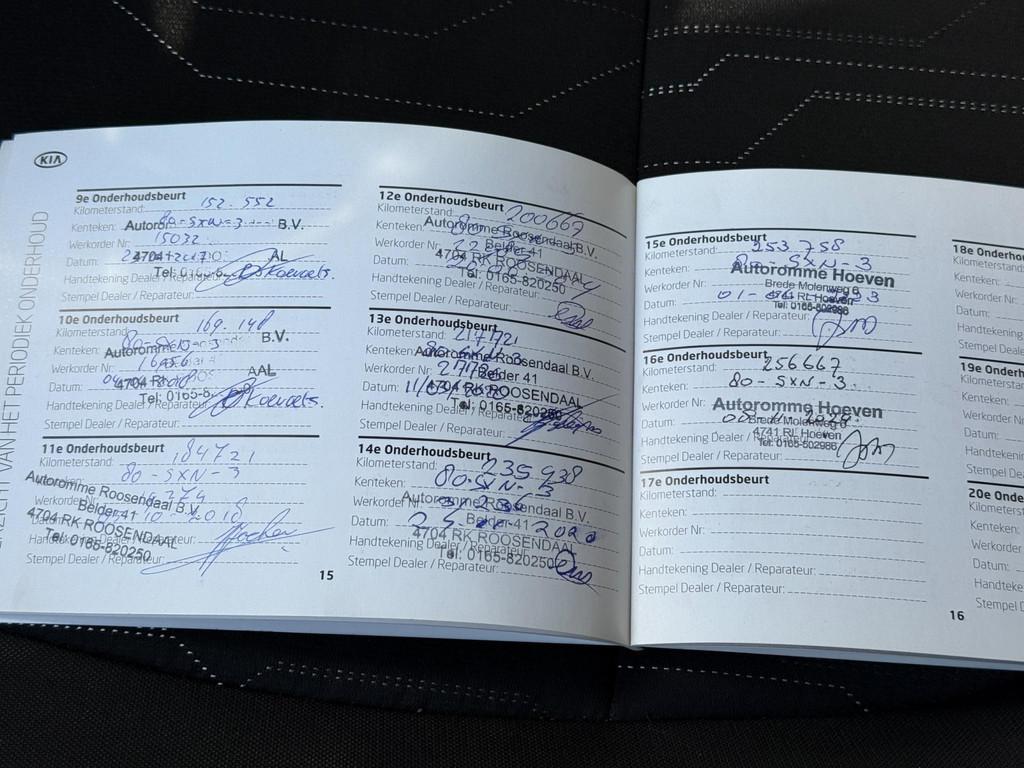 KIA
OVERZICHT VAN HET PERIODIEK ONDERHOUD
9e Onderhoudsbeurt
Kilometerstand: 152.552
Kenteken: 80-SXN-3
B.V.
Werkorder Nr: 15032
Datum:
AL
Handtekening Dealer / Reparateur:
Tel: 0165-8
Stempel Dealer / Reparateur:
10e Onderhoudsbeurt
Kilometerstand: 169.148
Kenteken: 80-SXN-3
Autoromme
B.V.
Werkorder Nr:
Datum:
AAL
Handtekening Dealer / Reparateur:
Tel: 0165-8
Stempel Dealer / Reparateur:
11e Onderhoudsbeurt
Kilometerstand: 184721
Kenteken: 80-SXN-3
Autoromme Roosendaal B.V.
Werkorder Nr:
Belder 41
Datum: 10-2018
4704 RK ROOSENDAAL
Handtekening Dealer / Reparateur:
Tel: 0165-820250
Stempel Dealer / Reparateur:
15
12e Onderhoudsbeurt
Kilometerstand: 200667
Autoromme Roosendaal B.V.
Kenteken:
Belder 41
Werkorder Nr:
4704 RK ROOSENDAAL
Datum:
Tel: 0165-820250
Handtekening Dealer / Reparateur:
Stempel Dealer / Reparateur:
13e Onderhoudsbeurt
Kilometerstand: 217721
Kenteken: 80-SXN-3
Autoromme Roosendaal B.V.
Werkorder Nr:
Belder 41
Datum:
4704 RK ROOSENDAAL
Handtekening Dealer / Reparateur:
Tel: 0165-820250
Stempel Dealer / Reparateur:
14e Onderhoudsbeurt
Kilometerstand: 235938
Kenteken: 80-SXN-3
Autoromme Roosendaal B.V.
Werkorder Nr:
Belder 41
Datum: 2020
4704 RK ROOSENDAAL
Handtekening Dealer / Reparateur:
Tel: 0165-820250
Stempel Dealer / Reparateur:
15e Onderhoudsbeurt
Kilometerstand: 253758
Kenteken: 80-SXN-3
Autoromme Hoeven
Werkorder Nr:
Brede Molenweg 6
Datum: 01-
4741 RL Hoeven
Tel: 0165-502986
Handtekening Dealer / Reparateur:
Stempel Dealer / Reparateur:
16e Onderhoudsbeurt
Kilometerstand: 256667
Kenteken: 80-SXN-3
Werkorder Nr:
Autoromme Hoeven
Datum:
Brede Molenweg 6
4741 RL Hoeven
Handtekening Dealer / Reparateur:
Tel: 0165-502986
Stempel Dealer / Reparateur:
17e Onderhoudsbeurt
Kilometerstand:
Kenteken:
Werkorder Nr:
Datum:
Handtekening Dealer / Reparateur:
Stempel Dealer / Reparateur:
16
18e Onderh
Kilometerst
Kenteken:
Werkorder
Datum:
Handtekening
Stempel De
19e Onder
Kilometerst
Kenteken:
Werkorder
Datum:
Handteken
Stempel De
20e Onde
Kilometers
Kenteken:
Werkorder
Datum:
Handteke
Stempel D